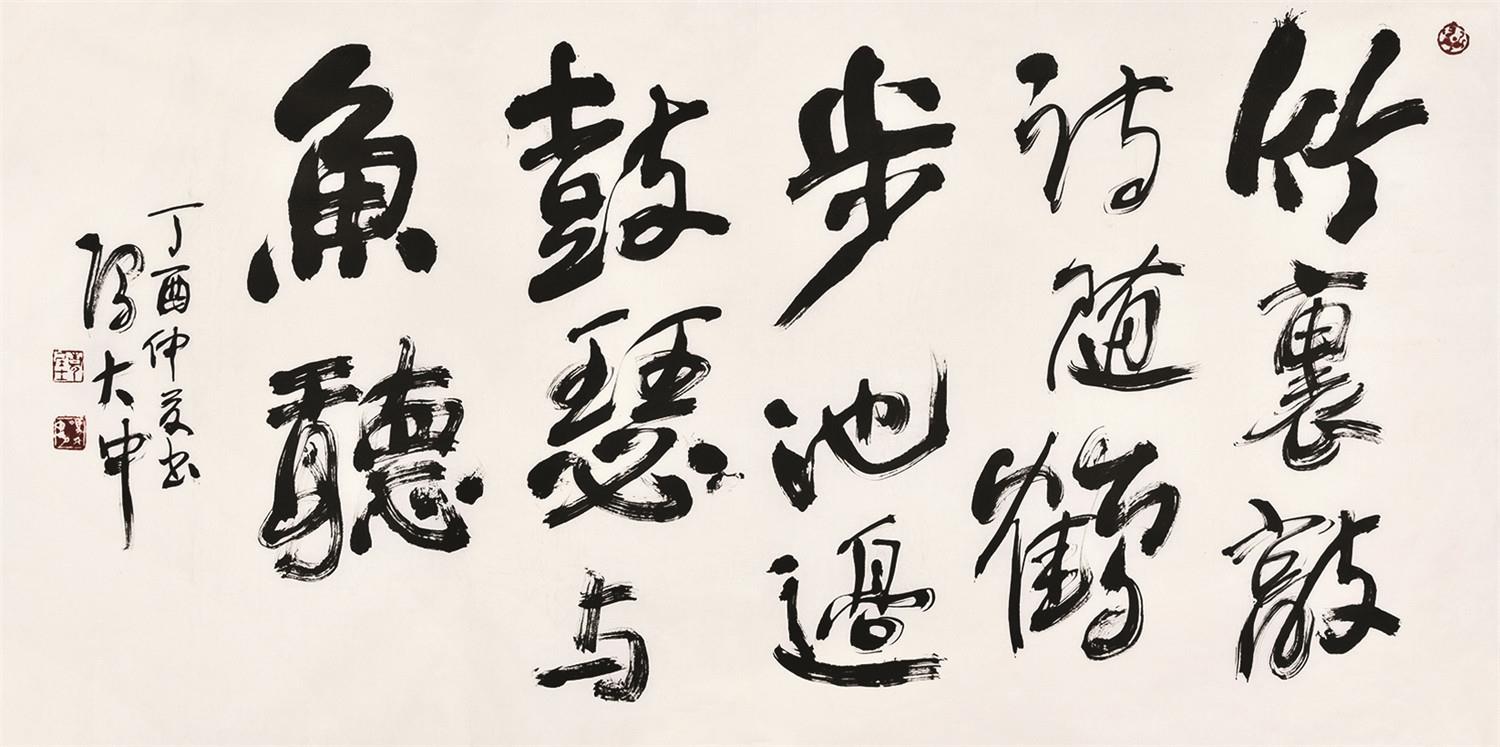 竹裏敲
詩随鶴
步池邊
鼓瑟与
魚聽
丁酉仲夏书
陈大中